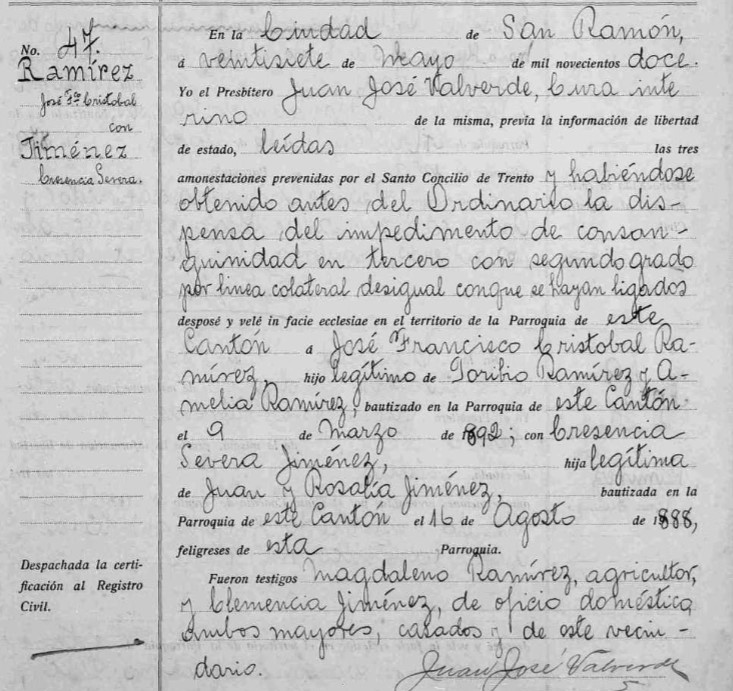 No. 47.
Ramírez
José Fco Cristobal
con
Jiménez
Cresencia Severa.
Despachada la certi-
ficación al Registro
Civil.
En la Ciudad de San Ramón,
á veintisiete de Mayo de mil novecientos doce.
Yo el Presbítero Juan José Valverde, Cura inte
rino de la misma, previa la información de libertad
de estado, leídas las tres
amonestaciones prevenidas por el Santo Concilio de Trento y habiéndose
obtenido antes del Ordinario la dis-
pensa del impedimento de consan-
guinidad en tercero con segundo grado
por linea colateral desigual conque se hayan ligados
desposé y velé in facie ecclesiae en el territorio de la Parroquia de este
Cantón á José Francisco Cristobal Ra-
mírez, hijo legítimo de Toribio Ramírez y A-
melia Ramírez, bautizado en la Parroquia de este Cantón
el 9 de Marzo de 1892; con Cresencia
Severa Jiménez, hija legítima
de Juan y Rosalía Jiménez, bautizada en la
Parroquia de este Cantón el 16 de Agosto de 1888,
feligreses de esta Parroquia.
Fueron testigos Magdaleno Ramírez, agricultor,
y Clemencia Jiménez, de oficio doméstica
ambos mayores, casados y de este vecin-
dario. Juan José Valverde